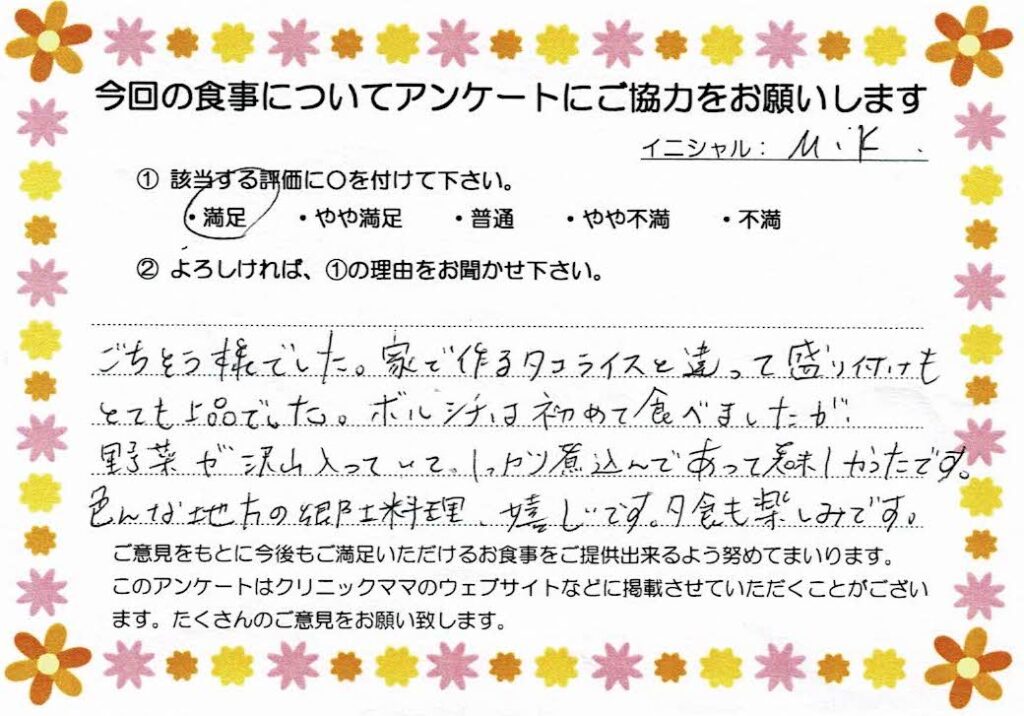 今回の食事についてアンケートにご協力をお願いします
イニシャル： M.K.
① 該当する評価に○を付けて下さい。
・満足 ・やや満足 ・普通 ・やや不満 ・不満
② よろしければ、①の理由をお聞かせ下さい。
ごちそう様でした。家で作るタコライスと違って盛り付けも
とても上品でした。ボルシチは初めて食べましたが、
野菜が沢山入っていて、しっかり煮込んであって美味しかったです。
色んな地方の郷土料理、嬉しいです。夕食も楽しみです。
ご意見をもとに今後もご満足いただけるお食事をご提供出来るよう努めてまいります。
このアンケートはクリニックママのウェブサイトなどに掲載させていただくことがござい
ます。たくさんのご意見をお願い致します。